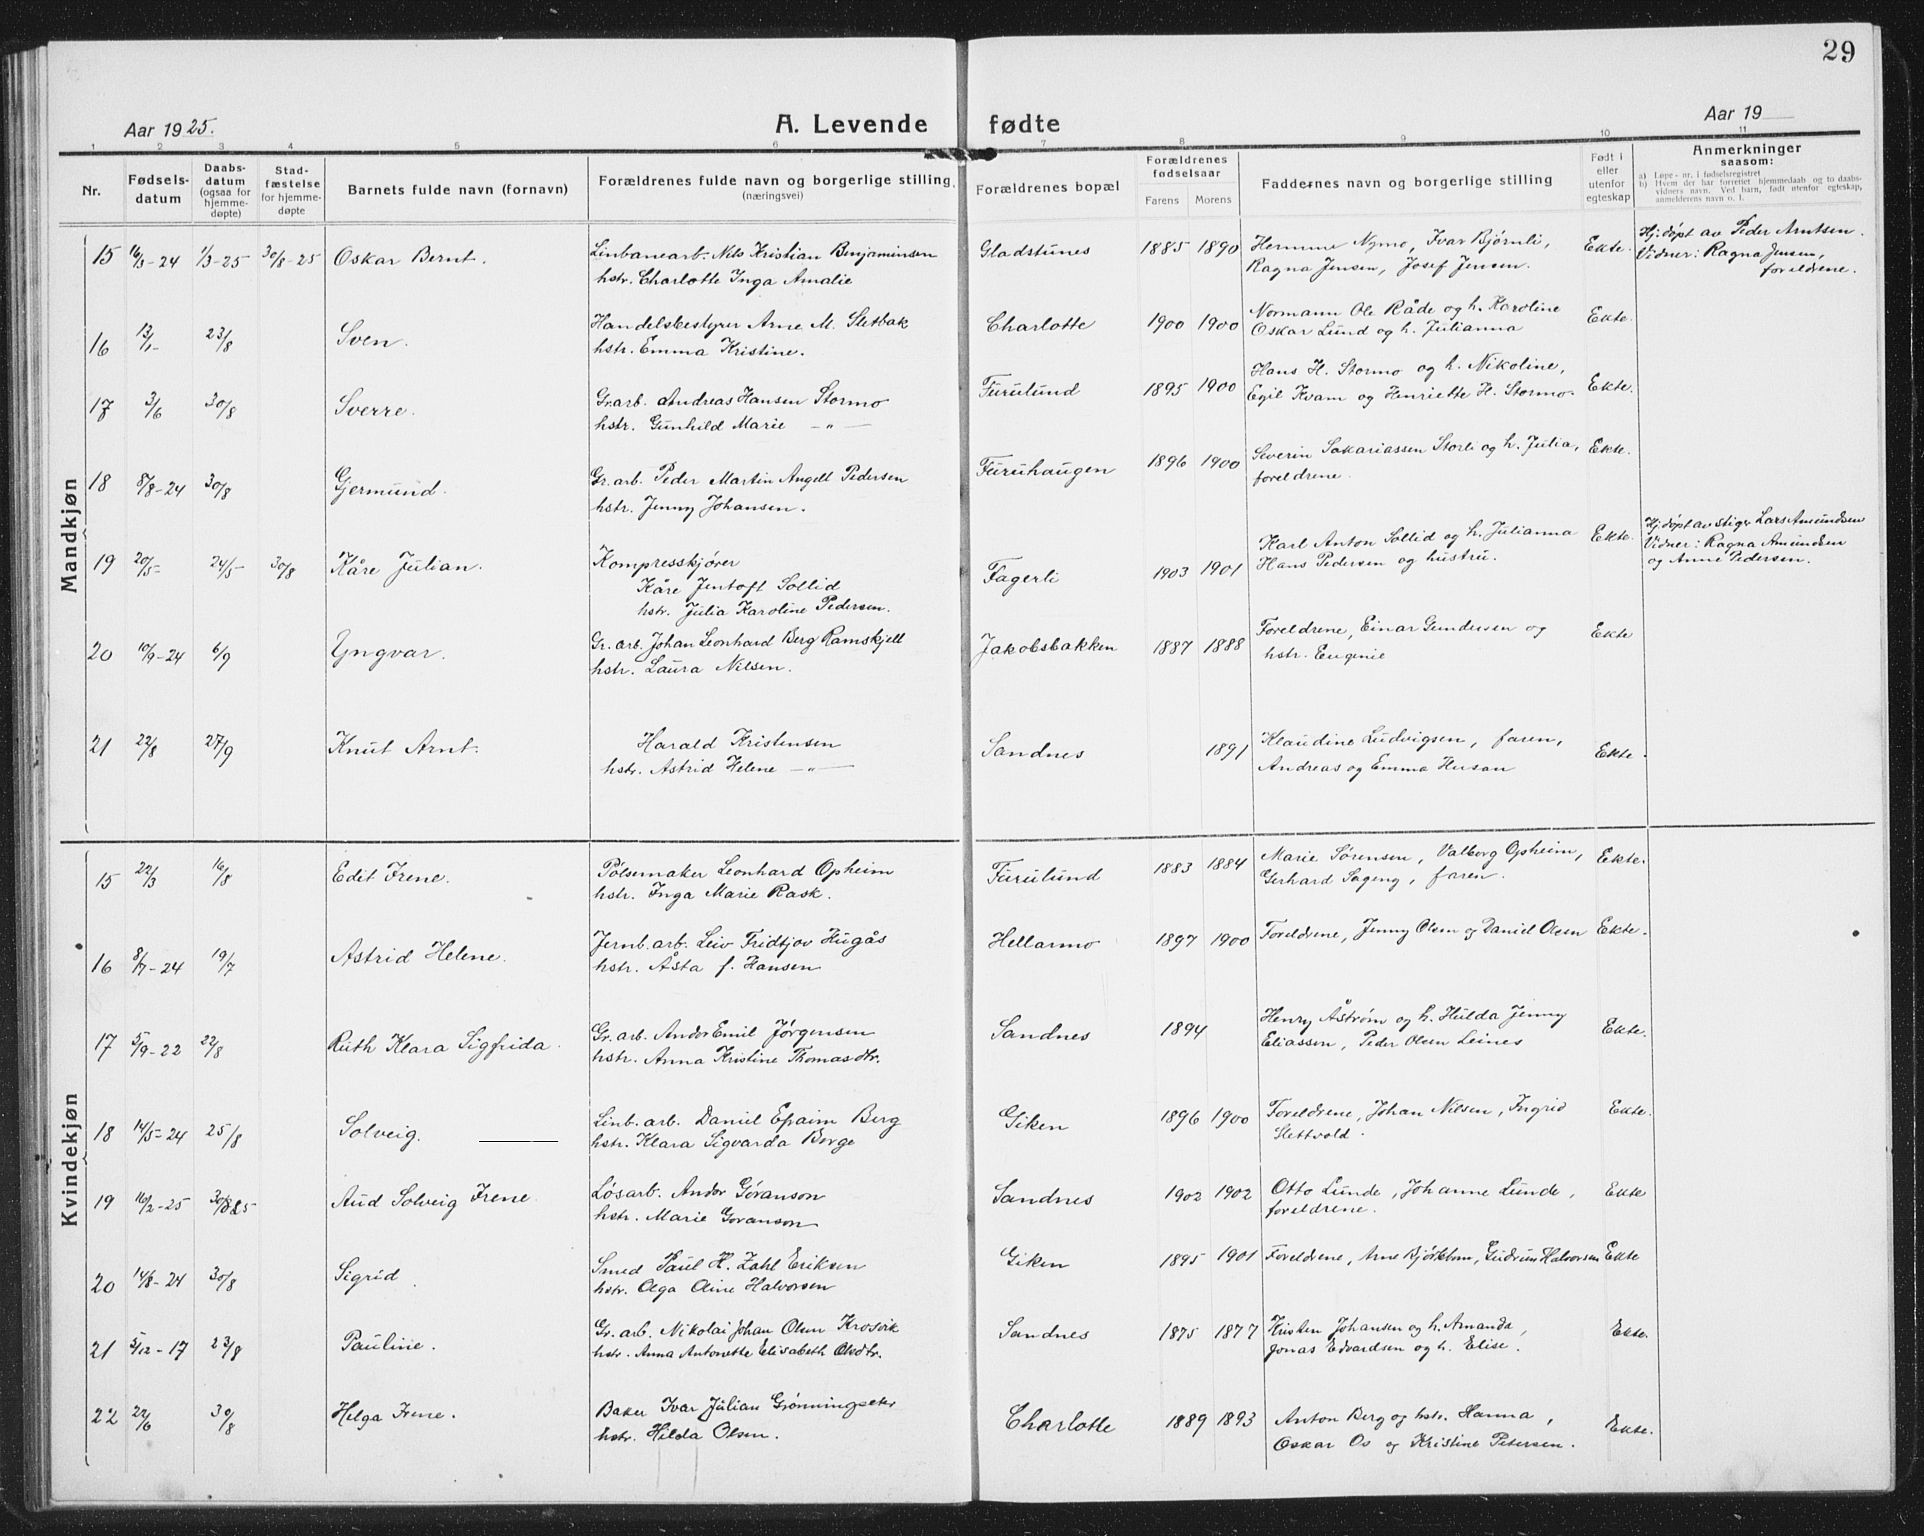 29
Aar 1925.
A. Levende fødte
Aar 19
1 2 3 4 5 6 7 8 9 10 11
Nr.
Fødsels-
datum
Daabs-
datum
(ogsaa for
hjemme-
døpte)
Stad-
fæstelse
for hjemme-
døpte
Barnets fulde navn (fornavn)
Forældrenes fulde navn og borgerlige stilling
(næringsvei)
Forældrenes bopæl
Forældrenes
fødselsaar
Farens Morens
Faddernes navn og borgerlige stilling
Født i
eller
utenfor
egteskap
Anmerkninger
saasom:
a) Løpe-nr. i fødselsregistret
b) Hvem der har forrettet hjemmedaab og to daabs-
vidners navn. Ved barn, født utenfor egteskap,
anmelderens navn o. l.
Mandkjøn
15 16/3-24 1/3-25 30/8-25 Oskar Bernt.
Linbanearb. Nils Kristian Benjaminsen
hstr. Charlotte Inga Amalie
Gladstunes 1885 1890
Hemme Nymo, Ivar Bjørnli,
Ragna Jensen, Josef Jensen.
Ekte.
Hj. døpt av Peder Arntsen.
Vidner: Ragna Jensen,
foreldrene.
16 13/1- 23/8 Sven.
Handelsbestyrer Arne M. Sletbak
hstr. Emma Kristine.
Charlotte 1900 1900
Normann Ole Råde og h. Karoline
Oskar Lund og h. Julianna
Ekte.
17 3/6 30/8 Sverre.
Gr.arb. Andreas Hansen Stormo
hstr. Gunhild Marie — " —
Furulund 1895 1900
Hans H. Stormo og h. Nikoline,
Egil Kvam og Henriette H. Stormo.
Ekte.
18 8/8-24 30/8 Gjermund.
Gr. arb. Peder Martin Angell Pedersen
hstr. Jenny Johansen.
Furuhaugen 1896 1900
Severin Sakariassen Storli og h. Julia,
foreldrene.
Ekte.
19 20/5- 24/5- 30/8 Kåre Julian.
Kompresskjører
Kåre Jentoft Sollid
hstr. Julia Karoline Pedersen.
Fagerli 1903 1901
Karl Anton Sollid og h. Julianna
Hans Pedersen og hustru.
Ekte.
Hj. døpt av stiger Lars Amundsen
Vidner: Ragna Amundsen
og Anne Pedersen.
20 10/9-24 6/9 Yngvar.
Gr. arb. Johan Leonhard Berg Ramskjell
hstr. Laura Nilsen.
Jakobsbakken 1887 1888
Foreldrene, Einar Gundersen og
hstr. Eugenie
Ekte
21 22/8 27/9 Knut Arnt.
Harald Kristensen
hstr. Astrid Helene — " —
Sandnes 1891
Klaudine Ludvigsen, faren,
Andreas og Emma Husan
Ekte.
Kvindekjøn
15 22/3 16/8 Edit Irene.
Pølsemaker Leonhard Opheim
hstr. Inga Marie Rask.
Furulund 1883 1884
Marie Sørensen, Valborg Opheim,
Gerhard Sageng, faren.
Ekte.
16 8/7-24 19/7 Astrid Helene.
Jernb. arb. Leiv Fridtjov Hugås
hstr. Åsta f. Hansen
Hellarmo 1897 1900
Foreldrene, Jenny Olsen og Daniel Olsen
Ekte.
17 5/9-22 22/8 Ruth Klara Sigfrida.
Gr. arb. Andor Emil Jørgensen
hstr. Anna Kristine Thomasdtr.
Sandnes 1894
Henry Åstrøm og h. Hulda Jenny
Eliassen, Peder Olsen Leines
Ekte.
18 14/5-24 25/8 Solveig.
Linb. arb. Daniel Epaim Berg
hstr. Klara Sigvarda Borge
Giken 1896 1900
Foreldrene, Johan Nilsen, Ingrid
Slettvold.
Ekte.
19 16/2-25 Aud Solveig Irene.
Løsarb. Andor Gøranson
hstr. Marie Goranson
Sandnes 1902 1902
Otto Lunde, Johanne Lunde,
foreldrene.
Ekte
20 14/8-24 30/8 Sigrid.
Smed Paul H. Zahl Eriksen
hstr. Olga Oline Halvorsen
Giken 1895 1901
Foreldrene, Arne Gudrun Halvorsen
Ekte
21 5/12-17 23/8 Pauline.
Gr. arb. Nikolai Johan Olsen Krosvik
hstr. Anna Antonette Elisabeth Olsdtr.
Sandnes 1875 1877
Kristen Johansen og h. Amanda,
Jonas Edvardsen og h. Elise.
Ekte.
22 22/6 30/8 Helga Irene.
Baker Ivar Julian Grønningseter
hstr. Hilda Olsen.
Charlotte 1889 1893
Anton Berg og hstr. Hanna,
Oskar Os og Kristine Petersen.
Ekte.